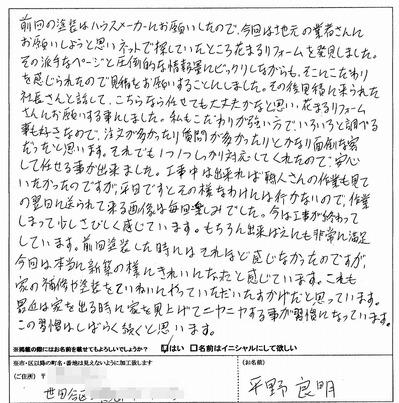 前回の塗装はハウスメーカーにお願いしたので、今回は地元の業者さんに
お願いしようと思いネットで探していたところ花まるリフォームを発見しました。
その派手なページと圧倒的な情報量にビックリしながらも、そこにこだわり
を感じられたので見積をお願いすることにしました。その後見積に来られた
社長さんと話して、こちらなら任せても大丈夫かなと思い花まるリフォーム
さんにお願いする事にしました。私もこだわりが強い方で、いろいろと調べる
事も好きなので、注文が多かったり質問が多かったりとかなり面倒な客
だったと思います。それでも1つ1つしっかり対応してくれたので、安心
して任せる事が出来ました。工事中は出来れば職人さんの作業も見て
いたかったのですが、平日ですとその様なわけにも行かないので、作業
の翌日に送られて来る画像は毎回楽しみでした。今は工事が終わって
しまって少しさびしく感じています。もちろん出来ばえにも非常に満足
しています。前回塗装した時にはそれほど感じなかったのですが、
今回は本当に新築の様にきれいになったと感じています。これも
家の補修や塗装をていねいにやっていただいたおかげだと思っています。
最近は家を出る時に家を見上げてニヤニヤする事が習慣になっています。
この習慣はしばらく続くと思います。
※掲載の際にはお名前を載せてもよろしいでしょうか? はい 名前はイニシャルにして欲しい
※市・区以降の町名・番地は見えないように加工致します
(ご住所) 〒
世田谷区
(お名前)
平野 良明